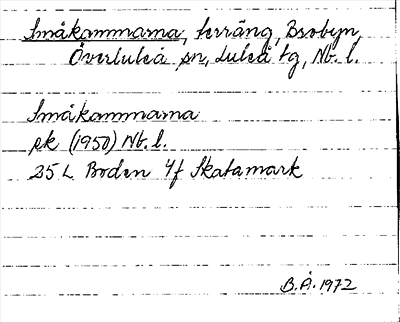 Småkammarna, terräng, Brobyn,
Överluleå sn, Luleå tg, Nb. l.
Småkammarna
ek (1950) Nb. l.
25 L Boden 4f Skatamark
B.Å. 1972